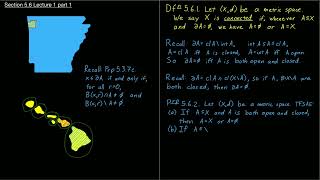 Section 5.6 Lecture 1 part 1
Recall Prp 5.3.7c
x∈∂A if and only if,
for all r>0,
B(x,r)∩A ≠ ∅ and
B(x,r)\A ≠ ∅
Dfn 5.6.1. Let (X,d) be a metric space.
We say X is connected if, whenever A⊆X
and ∂A=∅, we have A=∅ or A=X
Recall ∂A = clA \ intA, intA ⊆ A ⊆ clA,
A=clA iff A is closed, A=intA iff A open
So ∂A=∅ iff A is both open and closed.
Recall ∂A = clA ∩ cl(X\A), so if A, X\A are
both closed, then ∂A=∅.
Prp 5.6.2. Let (X,d) be a metric space. TFSAE
(a) If A⊆X and A is both open and closed,
then A=X or A=∅.
(b) If A=\